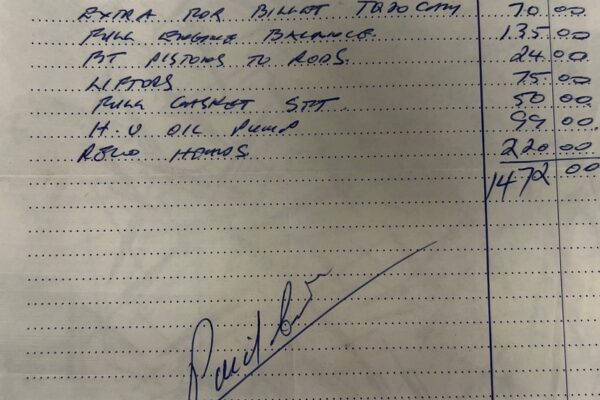 EXTRA FOR BILLET T220 CAM 70 00
FULL ENGINE BALANCE 135.00
FIT PISTONS TO RODS. 24.00
LIFTORS 75 00
FULL GASKET SETT 50 00
H.V OIL PUMP 99 00
RECO HEADS 220 00
1472 00
Paid